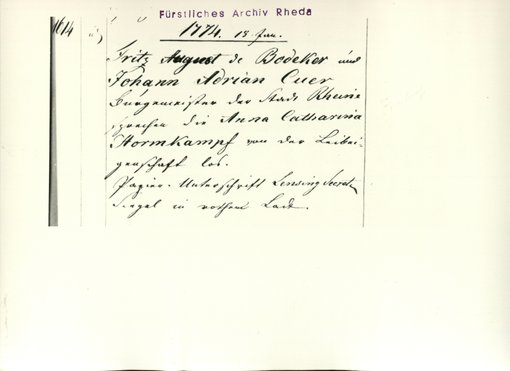 Fürstliches Archiv Rheda
1614
1774. 18 Jan.
Fritz August de Bodeker und
Johann Adrian Cuer
Bürgemeister der Stadt Rheine
sprechen die Anna Catharina
Stormkampf von der Leibei-
genschaft los.
Papier. Unterschrift Lensing Secret.
Siegel in rothem Lack.